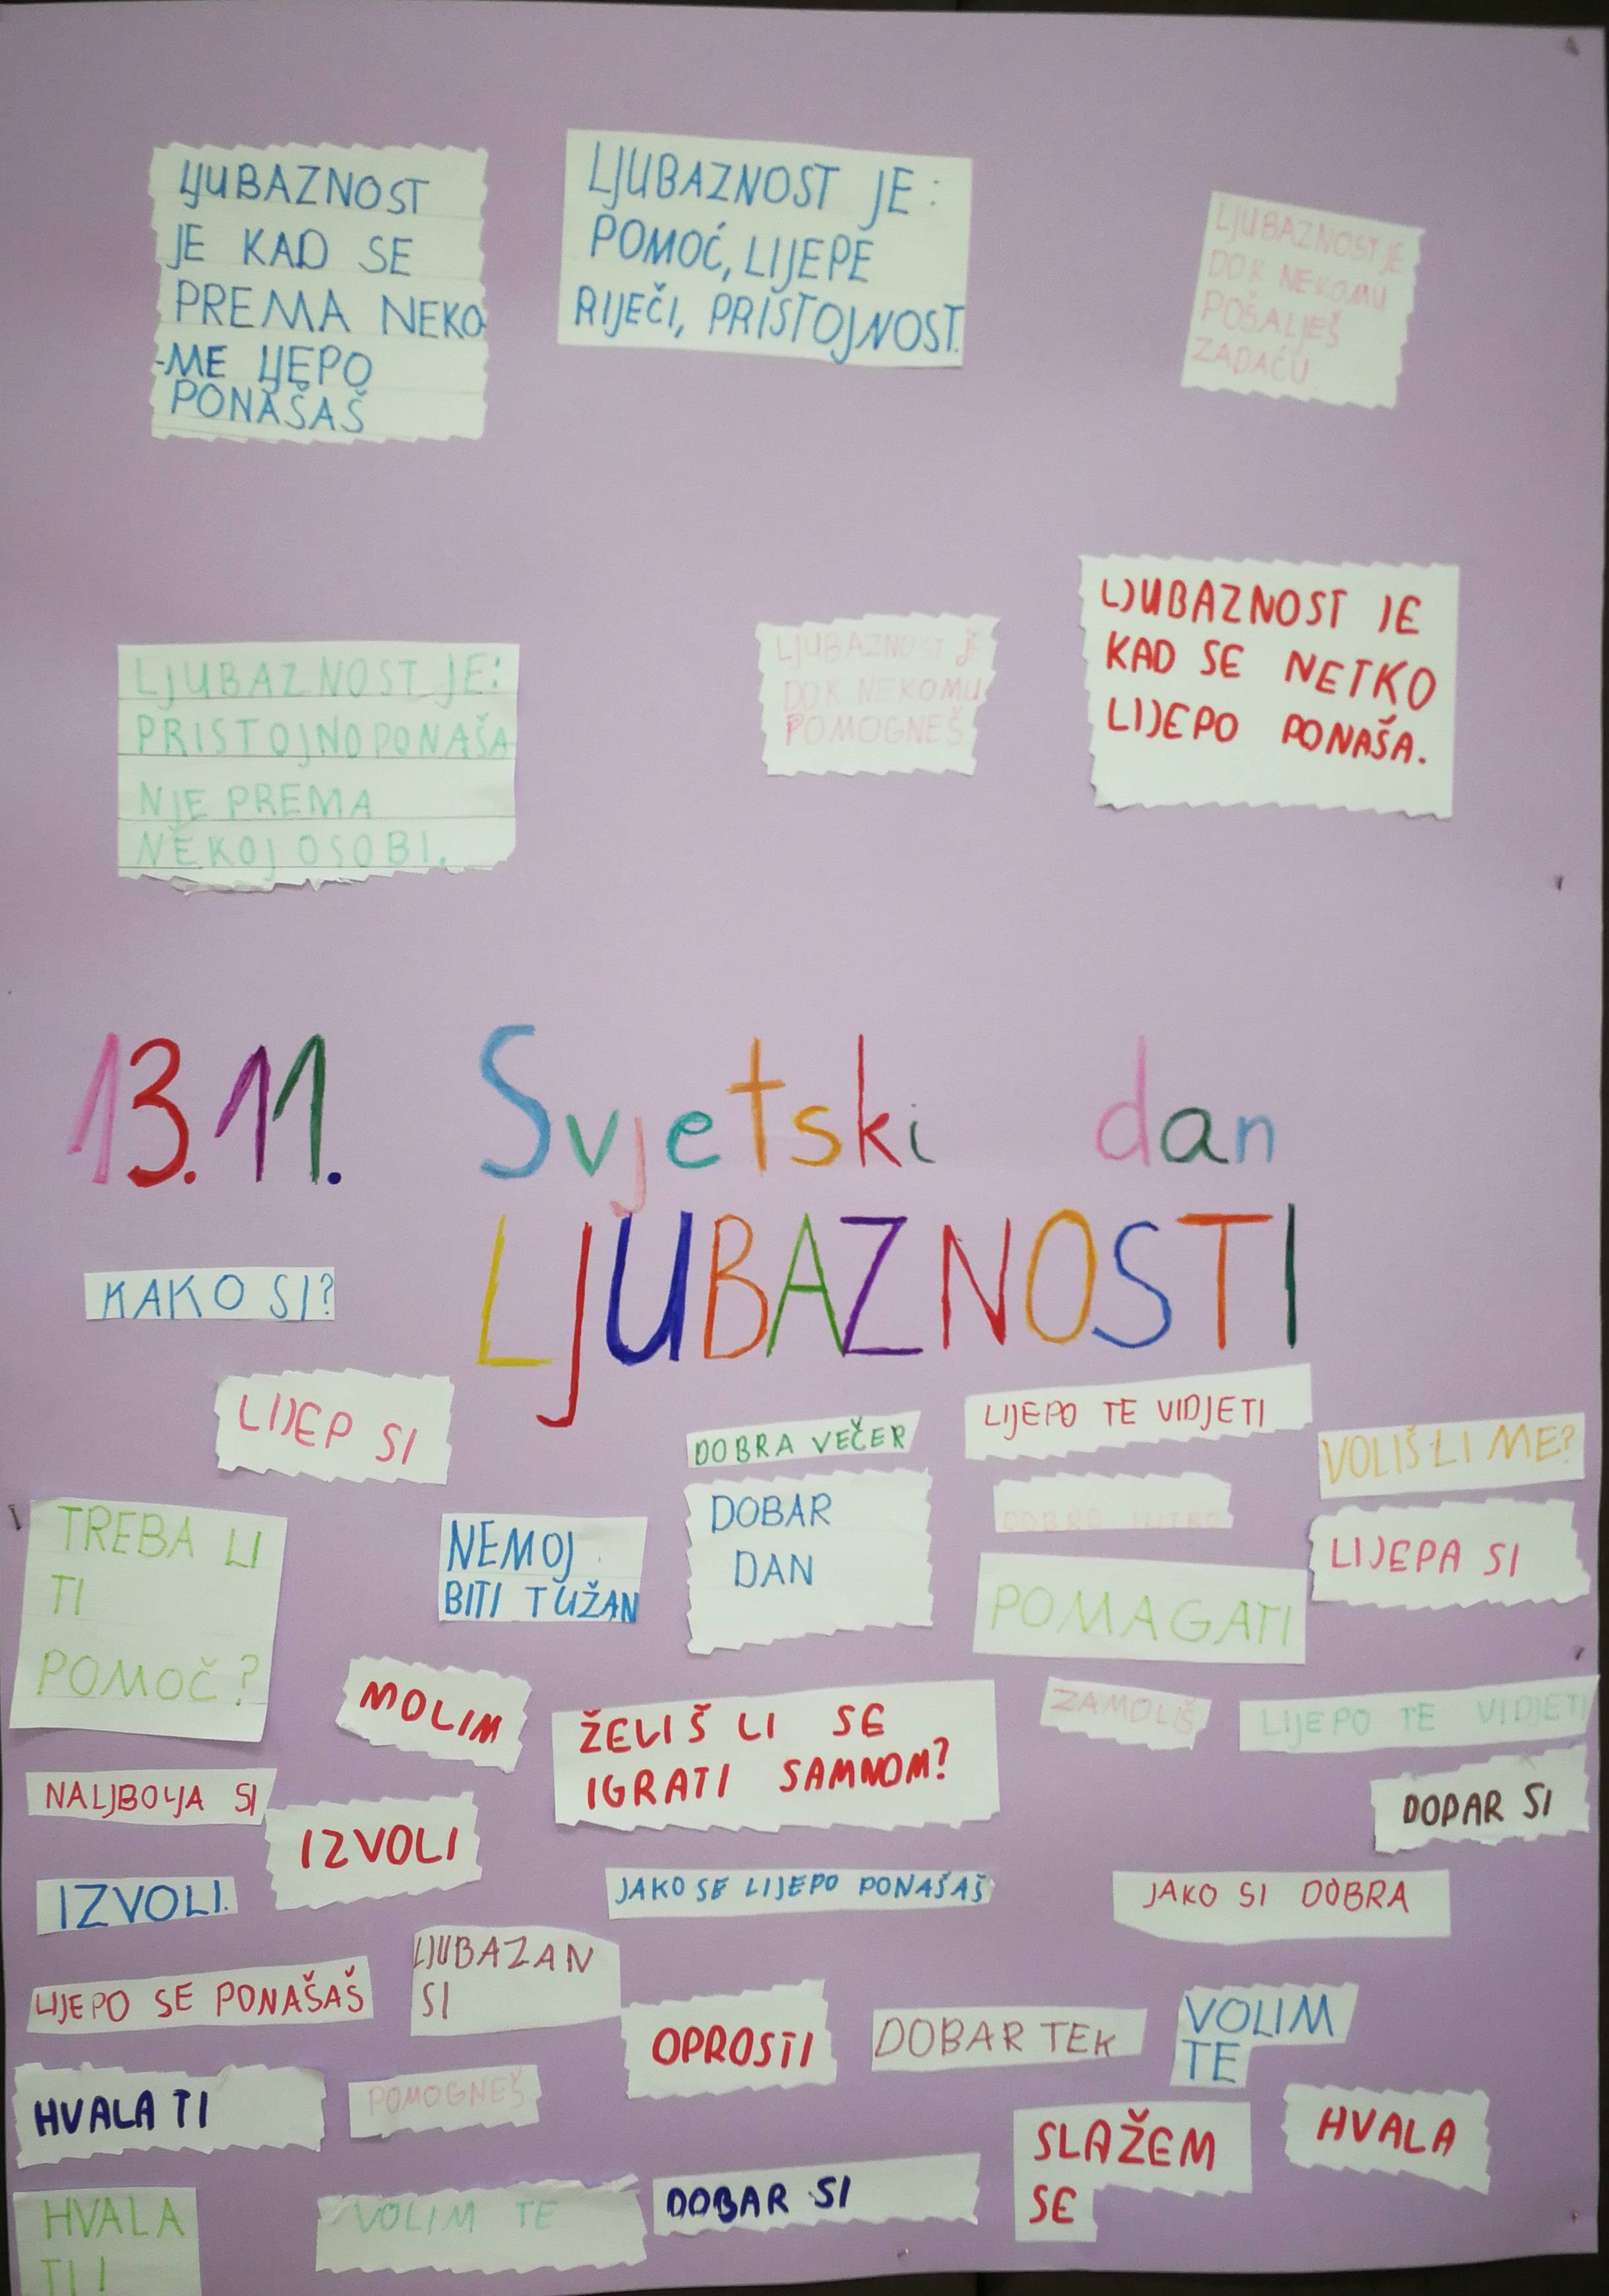 LJUBAZNOST
JE KAD SE
PREMA NEKO
-ME LJEPO
PONAŠAŠ
LJUBAZNOST JE:
POMOĆ, LIJEPE
RIJEČI, PRISTOJNOST.
LJUBAZNOST JE
DOK NEKOMU
POŠALJEŠ
ZADAĆU.
LJUBAZNOST JE:
PRISTOJNO PONAŠA
NJE PREMA
NEKOJ OSOBI.
LJUBAZNOST JE
DOK NEKOMU
POMOGNEŠ
LJUBAZNOST JE
KAD SE NETKO
LIJEPO PONAŠA.
13.11. Svjetski dan
LJUBAZNOSTI
KAKO SI?
LIJEP SI
DOBRA VEČER
LIJEPO TE VIDJETI
VOLIŠ LI ME?
TREBA LI
TI
POMOČ?
NEMOJ
BITI TUŽAN
DOBAR
DAN
DOBRO JUTRO
LIJEPA SI
POMAGATI
MOLIM
ŽELIŠ LI SE
IGRATI SAMNOM?
ZAMOLIŠ
LIJEPO TE VIDJETI
NALJBOLJA SI
IZVOLI
DOPAR SI
IZVOLI.
JAKO SE LIJEPO PONAŠAŠ
JAKO SI DOBRA
LIJEPO SE PONAŠAŠ
LJUBAZAN
SI
OPROSTI
DOBAR TEK
VOLIM
TE
HVALA TI
POMOGNEŠ
SLAŽEM
SE
HVALA
HVALA
TI!
VOLIM TE
DOBAR SI